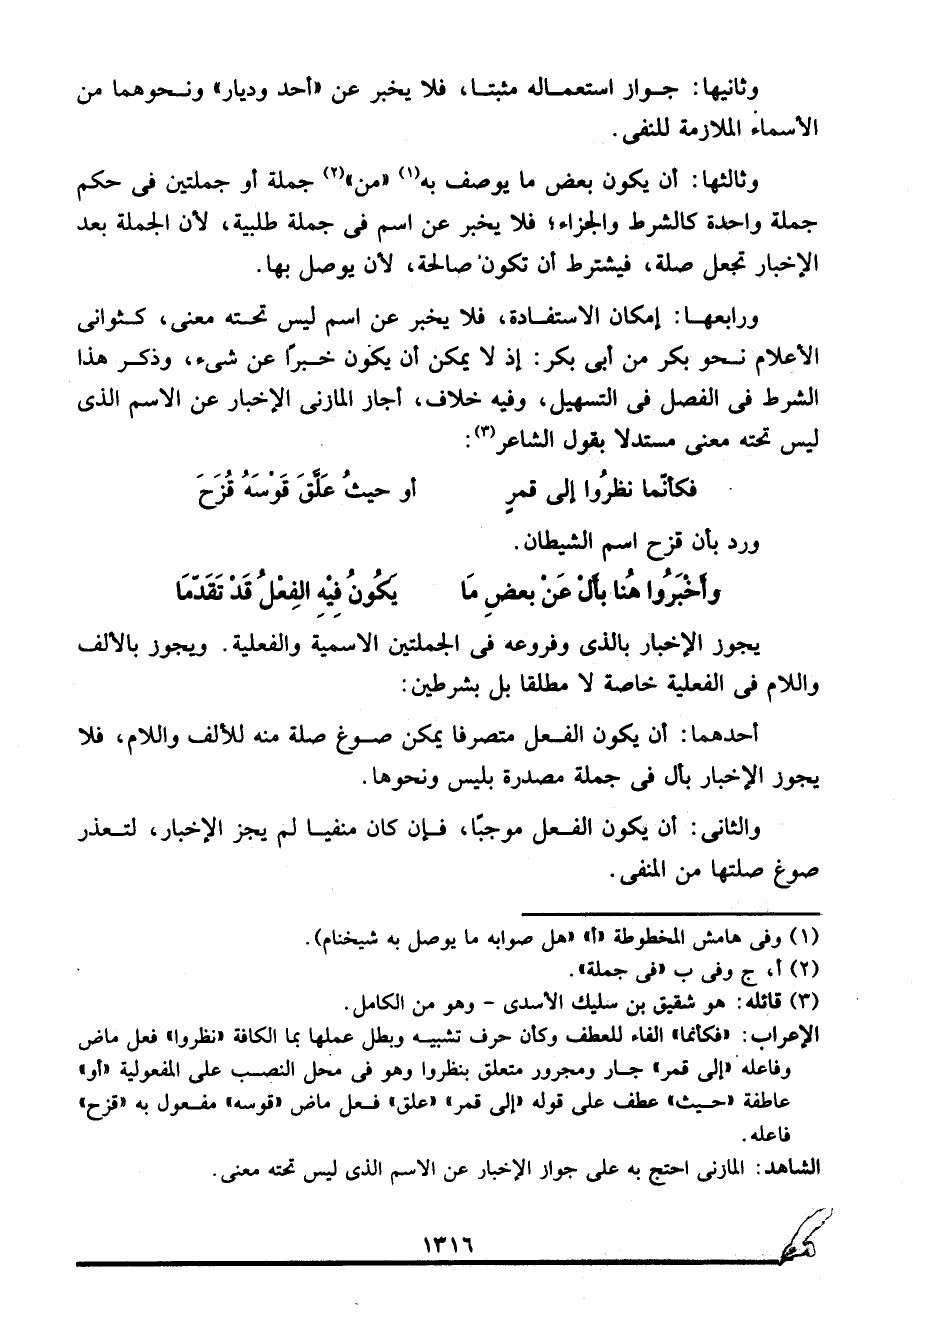 وثانيها: جـواز استعمـاله مثبتـا، فلا يخبر عن «أحد وديار» ونـحوهما من
الأسماء الملازمة للنفى.
وثالثها: أن يكون بعض ما يوصف به(١) «من»(٢) جملة أو جملتين فى حكم
جملة واحدة كالشرط والجزاء؛ فلا يخبر عن اسم فى جملة طلبية، لأن الجملة بعد
الإخبار تجعل صلة، فيشترط أن تكون صالحة، لأن يوصل بها.
ورابعهـا: إمكان الاستفـادة، فلا يخبر عن اسم ليس تحـته معنى، كـثوانى
الأعلام نـحو بكر من أبى بكر: إذ لا يمكن أن يكون خـبرًا عن شىء، وذكـر هذا
الشرط فى الفصل فى التسهيل، وفيه خلاف، أجاز المازنى الإخبار عن الاسم الذى
ليس تحته معنى مستدلا بقول الشاعر(٣):
فكأنّما نظرُوا إلى قمرٍ أو حيثُ عَلَّقَ قَوْسَهُ قُزَحَ
ورد بأن قزح اسم الشيطان.
وَأَخْبَرُوا هُنا بأَلْ عَنْ بعضِ مَا يَكُونُ فِيْهِ الفِعْلُ قَدْ تَقَدّمَا
يجوز الإخبار بالذى وفروعه فى الجملتين الاسمية والفعلية. ويجوز بالألف
واللام فى الفعلية خاصة لا مطلقا بل بشرطين:
أحدهما: أن يكون الفـعل متصرفا يمكن صـوغ صلة منه للألف واللام، فلا
يجوز الإخبار بأل فى جملة مصدرة بليس ونحوها.
والثانى: أن يكون الفـعل موجبًا، فـإن كان منفيـا لم يجز الإخبار، لتـعذر
صوغ صلتها من المنفى.
(١) وفى هامش المخطوطة «أ» «هل صوابه ما يوصل به شيخنام).
(٢) أ، ج وفى ب «فى جملة».
(٣) قائله: هو شقيق بن سليك الأسدى - وهو من الكامل.
الإعراب: «فكأنما» الفاء للعطف وكأن حرف تشبيه وبطل عملها بما الكافة «نظروا» فعل ماض
وفاعله «إلى قمر» جـار ومجرور متعلق بنظروا وهو فى محل النصب على المفعولية «أو»
عاطفة «حـيث» عطف على قوله «إلى قمر» «علق» فـعل ماض «قوسه» مفـعول به «قزح»
فاعله.
الشاهد: المازنى احتج به على جواز الإخبار عن الاسم الذى ليس تحته معنى.
١٣١٦